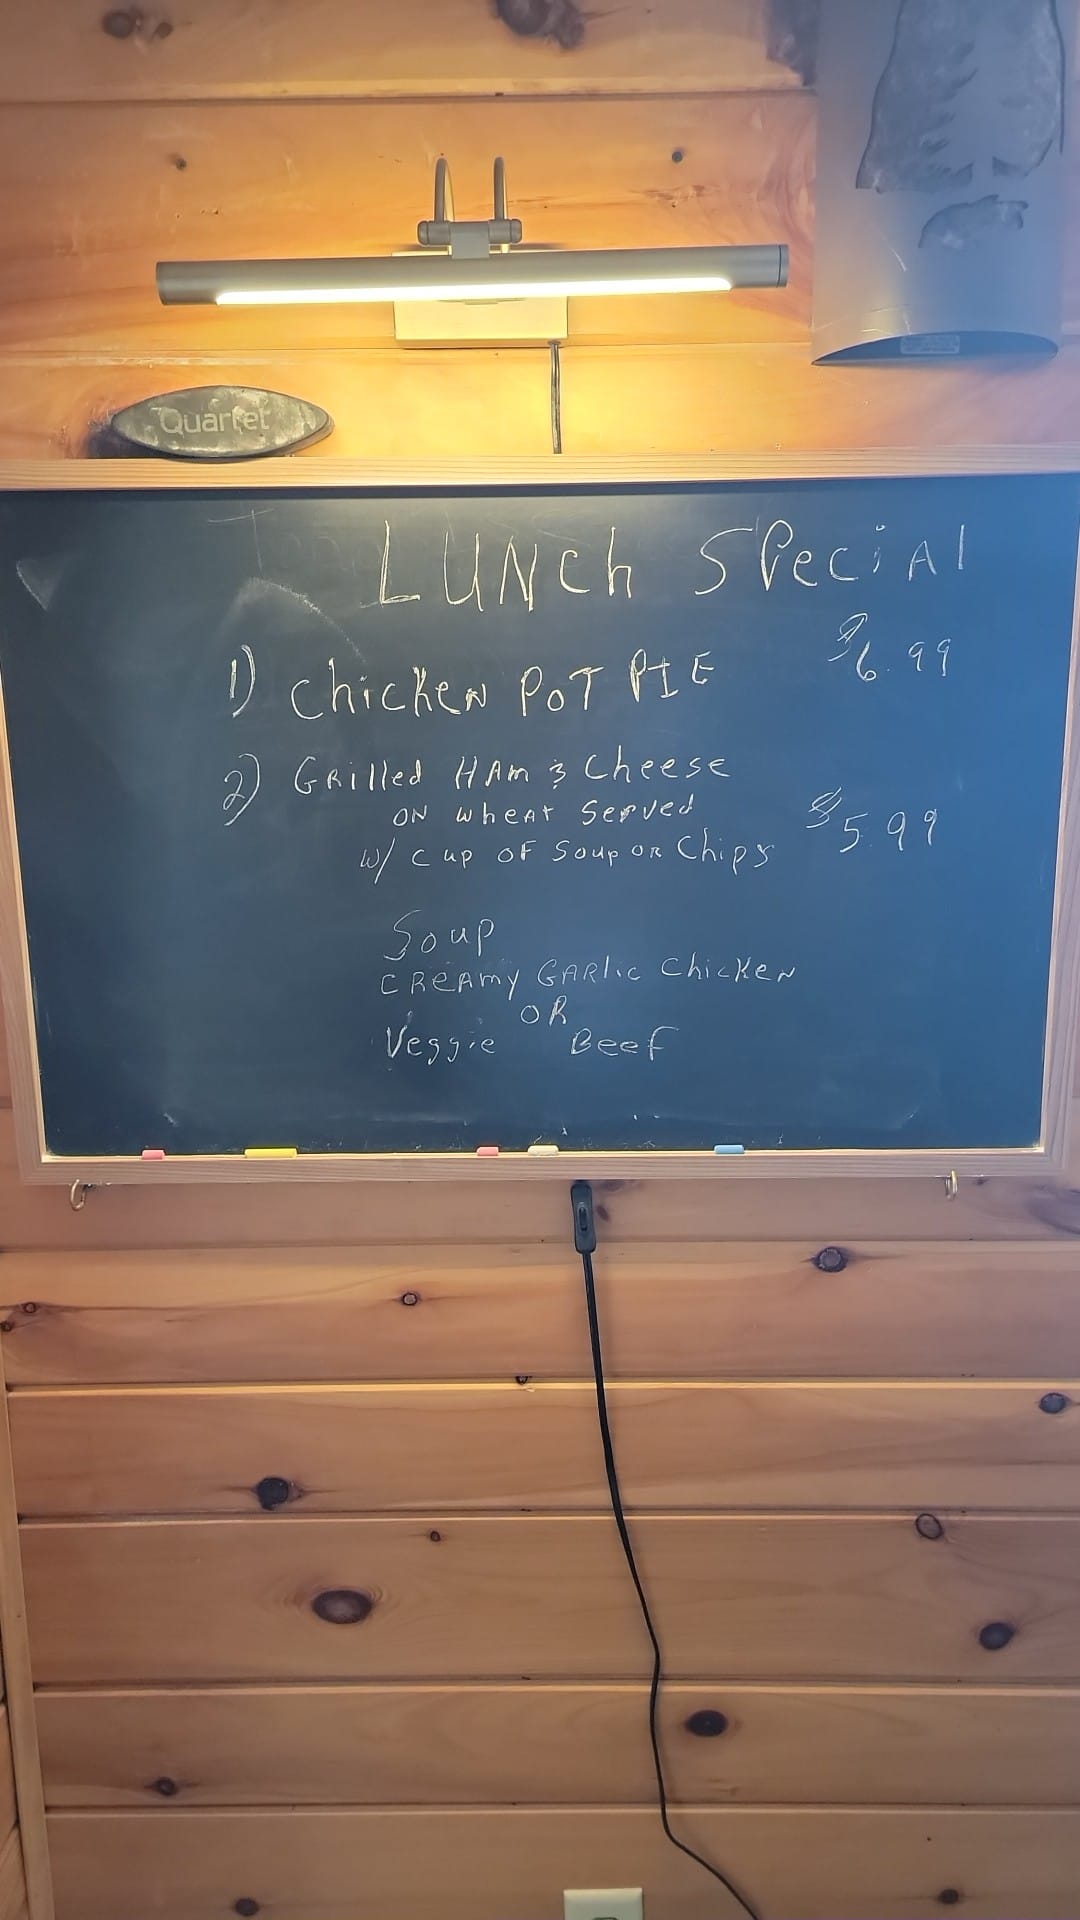 Quartet
LUNch SPeciAl
1) ChicKeN PoT PIE $6.99
2) GRilled HAm & Cheese
ON wheAt Served
w/ cup OF Soup OR Chips $5.99
Soup
CReAmy GARlic ChicKeN
OR
Veggie Beef